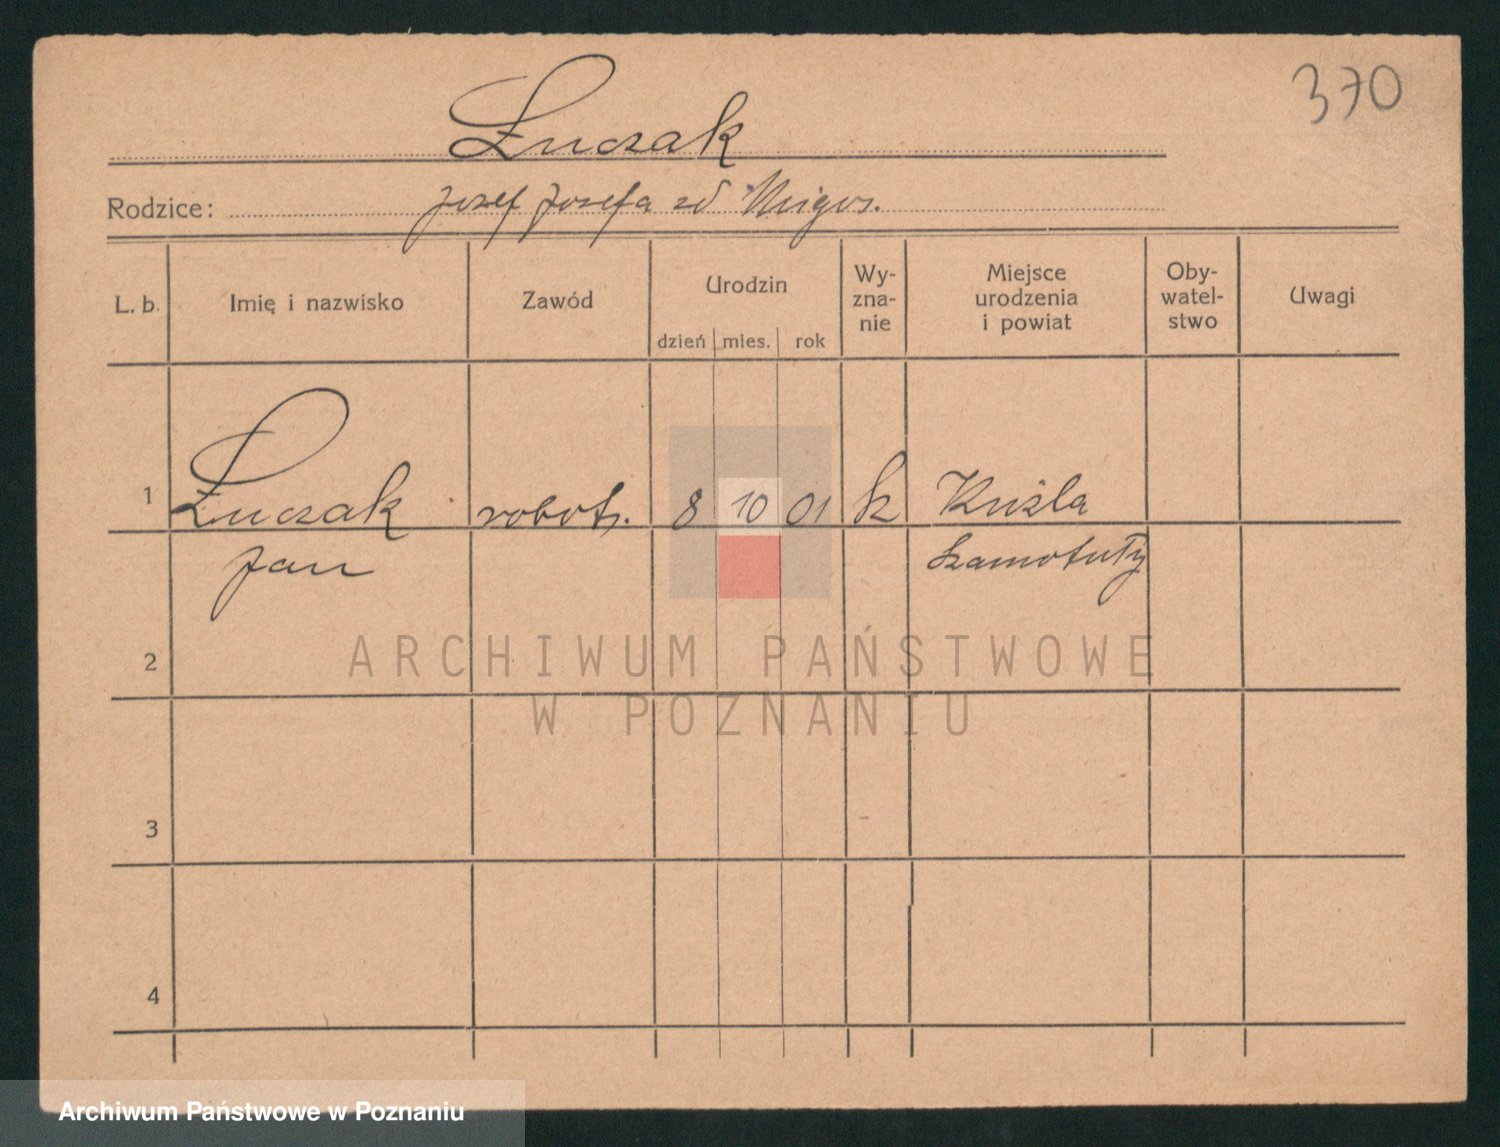 370
Łuczak
Rodzice: Józef Józefa zd Migos.
L. b.
Imię i nazwisko
Zawód
Urodzin
dzień mies. rok
Wy-
zna-
nie
Miejsce
urodzenia
i powiat
Oby-
watel-
stwo
Uwagi
1 Łuczak robotn. 8 10 01 k Kuźla
Jan Szamotuły
2
3
4
ARCHIWUM PAŃSTWOWE
W POZNANIU
Archiwum Państwowe w Poznaniu